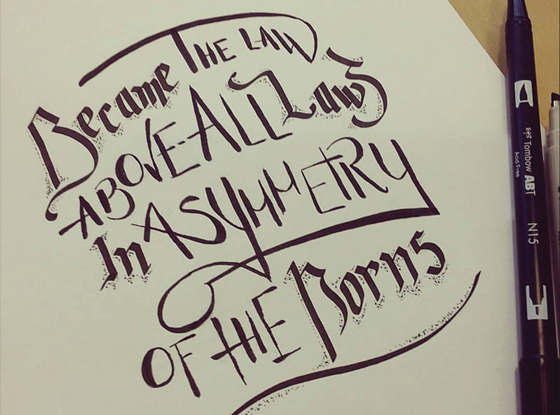 Became THE LAW
ABOVE ALL Laws
In ASYMMETRY
OF tHE Norns
Tombow ABT
N15